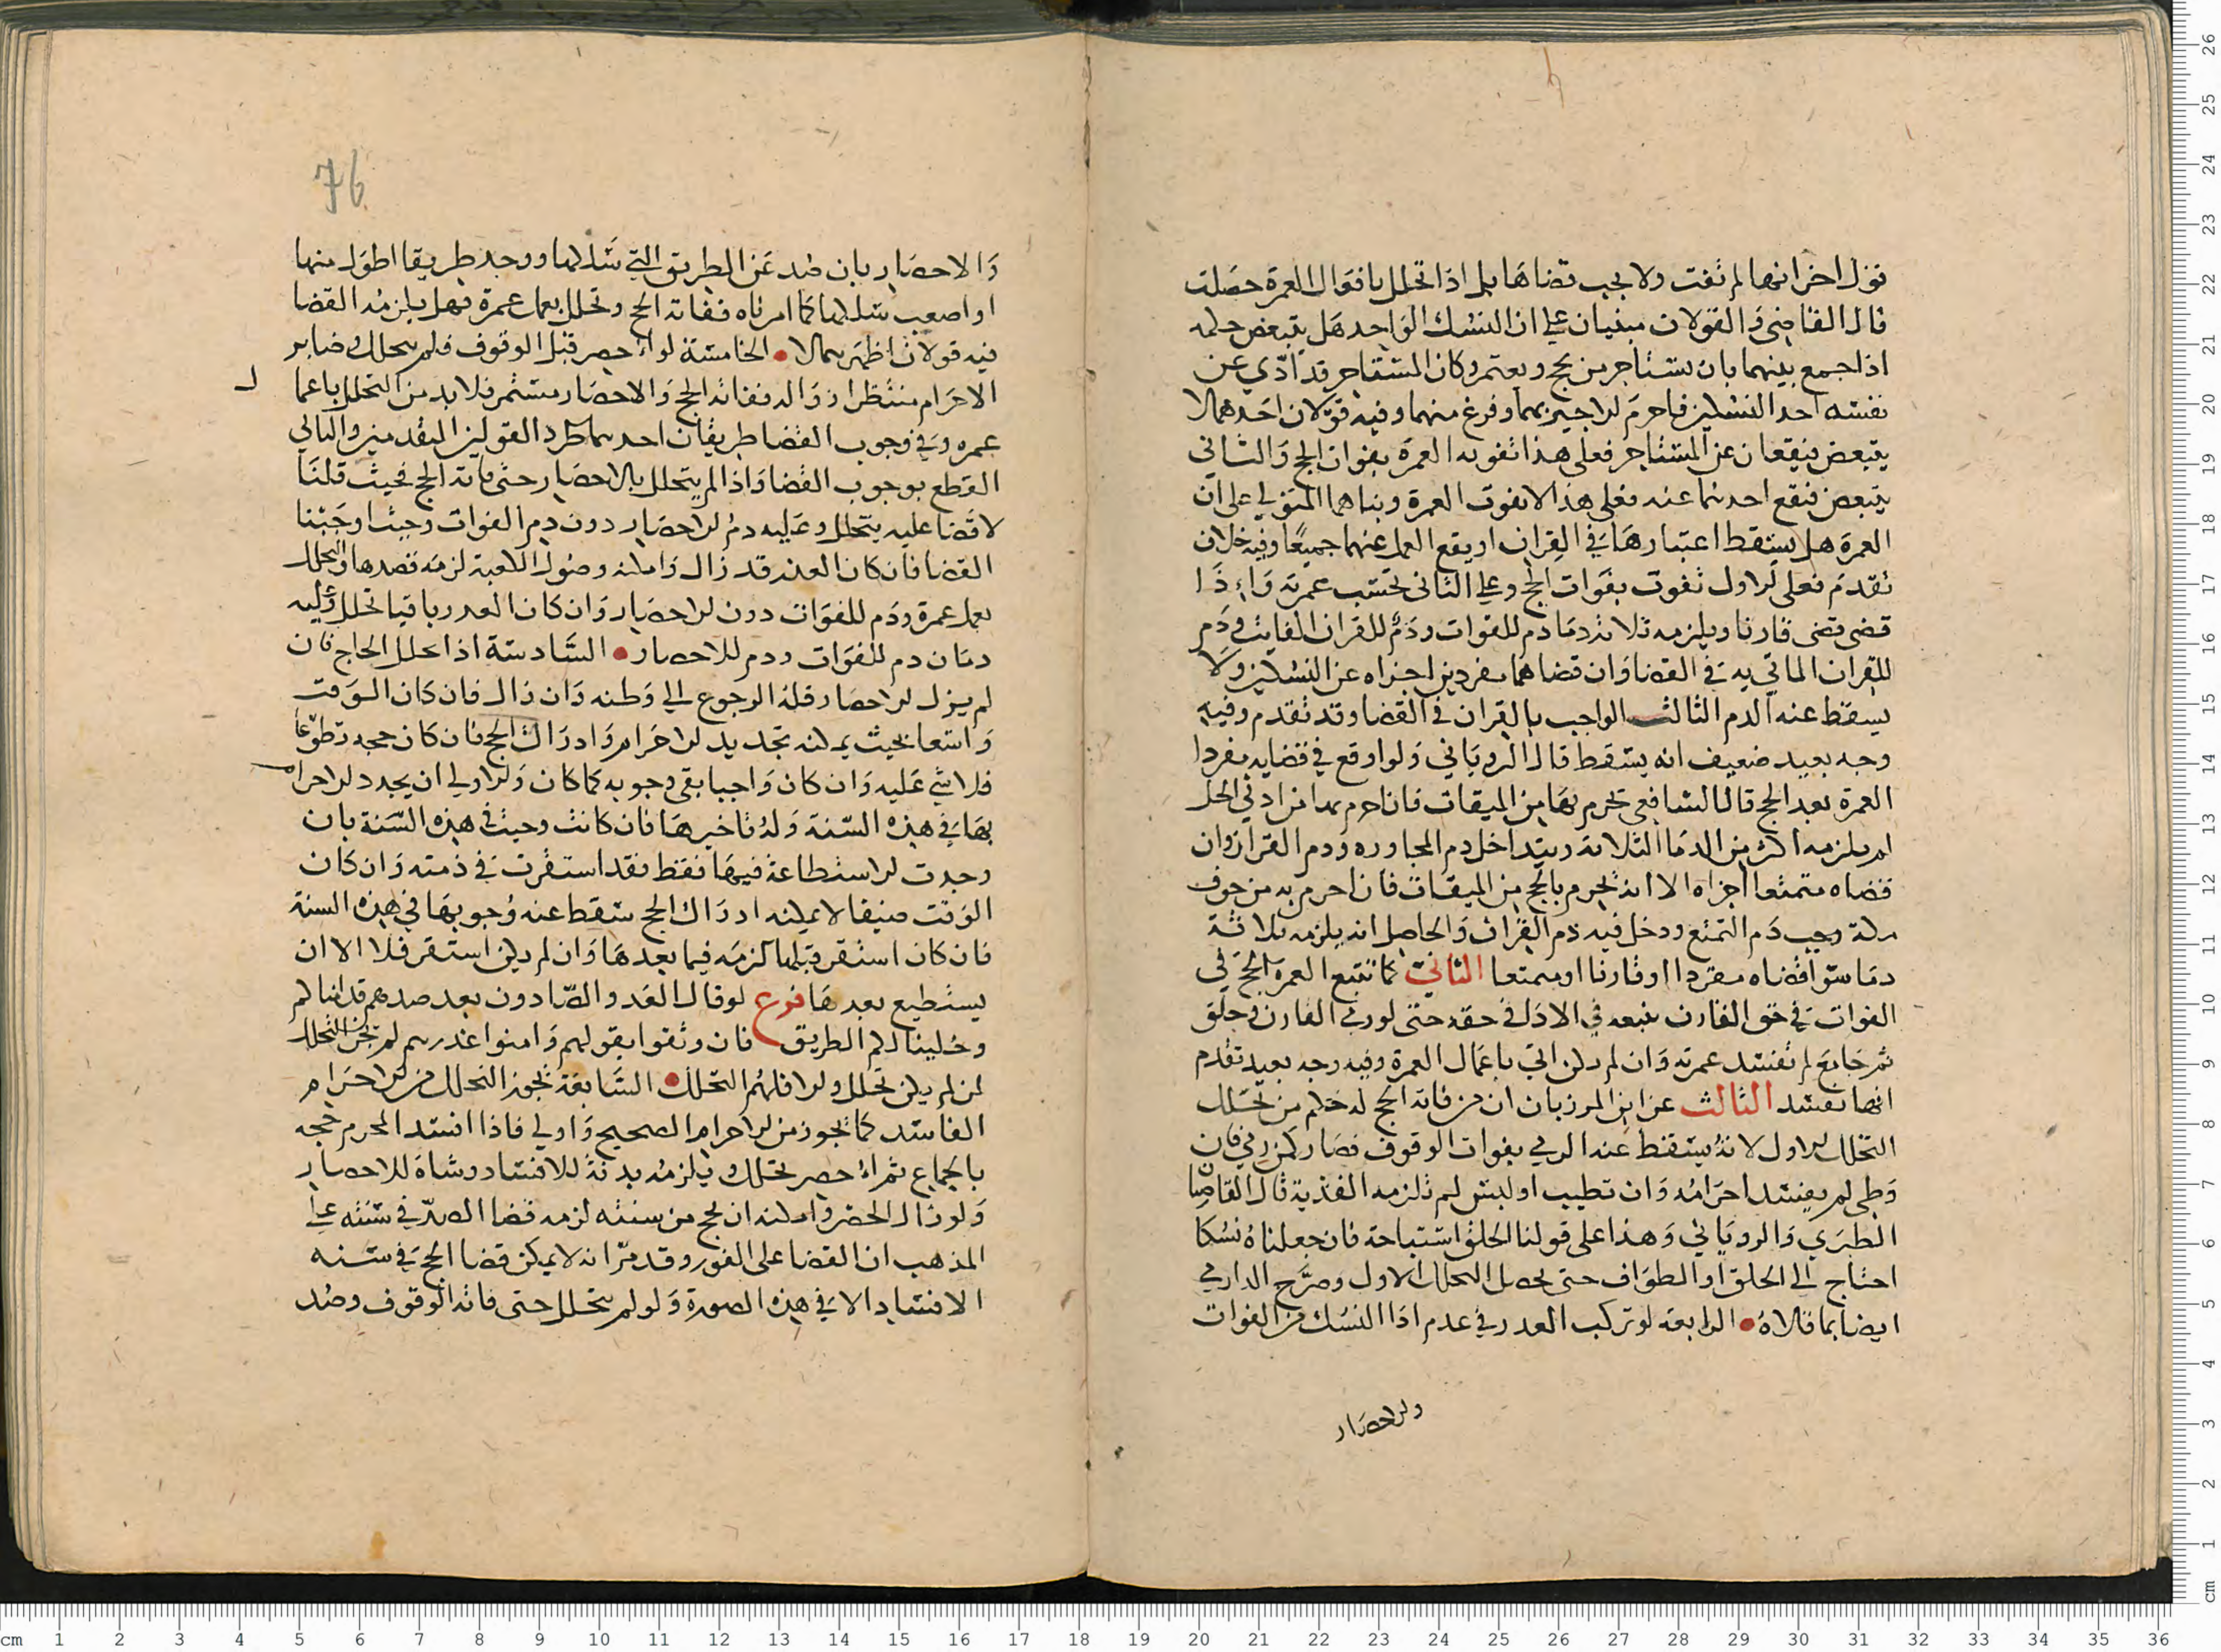 قول اخر انها لم تفت ولا يجب قضاها بل اذا تحلل بافعال العمرة حصلت
قال القاضي والقولان مبنيان على ان النسك الواحد هل يتبعض حكمه
اذا جمع بينهما بان يستاجر من يحج ويعتمر وكان المستاجر قد ادي عن
نفسه احد النسكين فاحرم الاجير بهما وفرغ منهما وفيه قولان احدهما لا
يتبعض فيقعان عن المستاجر فعلى هذا تفوته العمرة بفوات الحج والثاني
يتبعض فيقع احدهما عنه فعلى هذا لا يفوت العمرة وبناهما المتولي على ان
العمرة هل يسقط اعتبارها في القران او يقع العمل عنهما جميعا وفيه خلاف
تقدم فعلى الاول تفوت بفوات الحج وعلى الثاني تحتسب عمرته واذا
قضى قضى قارنا ويلزمه ثلاثة دما دم للفوات ودم للقران الفايت ودم
للقران الماتي به في القضا وان قضاهما مفردين اجزاه عن النسكين ولا
يسقط عنه الدم الثالث الواجب بالقران في القضا وقد تقدم وفيه
وجه بعيد ضعيف انه يسقط قال الروياني ولو اوقع في قضايه مفردا
العمرة بعد الحج قال الشافعي تحرم بها من الميقات فان احرم بها من ادني الحل
لم يلزمه اكثر من الدما الثلاثة ويتداخل دم المجاوره ودم القران وان
قضاه متمتعا اجزاه الا انه يحرم بالحج من الميقات فان احرم به من جوف
مكة وجب دم التمتع ودخل فيه دم القران والحاصل انه يلزمه ثلاثة
دما سوا قضاه مفردا او قارنا او متمتعا الثاني كما تتبع العمرة الحج في
الفوات في حق القارن تتبعه في الادا في حقه حتى لو رمى القارن وحلق
ثم جامع لم تفسد عمرته وان لم يكن اتي باعمال العمرة وفيه وجه بعيد تقدم
انها تفسد الثالث عن ابن المرزبان ان من فاته الحج له حكم من تحلل
التحلل الاول لانه يسقط عنه الرمي بفوات الوقوف فصار كمن رمي فان
وطي لم يفسد احرامه وان تطيب او لبس لم تلزمه الفدية قال القاضيان
الطبري والروياني وهذا على قولنا الحلق استباحة فان جعلناه نسكا
احتاج الى الحلق او الطواف حتى يحصل التحلل الاول وصرح الدارمي
ايضا بما قالاه الرابعة لو تركب العدر في عدم ادا النسك من الفوات
والاحصار
76
والاحصار بان صد عن الطريق التي سلكها ووجد طريقا اطول منها
او اصعب سلكها كما امرناه ففاته الحج وتحلل بعمل عمرة فهل يلزمه القضا
فيه قولان اظهرهما لا الخامسة لو احصر قبل الوقوف فلم يتحلل وصابر
الاحرام منتظرا زواله ففاته الحج والاحصار مستمر فلا بد من التحلل باعمال
عمره وفي وجوب القضا طريقان احدهما طرد القولين المتقدمين والثاني
القطع بوجوب القضا واذا لم يتحلل بالاحصار حتى فاته الحج فحيث قلنا
لا قضا عليه يتحلل وعليه دم الاحصار دون دم الفوات وحيث اوجبنا
القضا فان كان العذر قد زال وامكنه وصول الكعبة لزمه قصدها والتحلل
بعمل عمرة ودم للفوات دون الاحصار وان كان العدر باقيا تحلل وعليه
دمان دم للفوات ودم للاحصار السادسة اذا تحلل الحاج فان
لم يزل الاحصار فله الرجوع الى وطنه وان زال فان كان الوقت
واسعا بحيث يمكنه تجديد الاحرام وادراك الحج فان كان حجه تطوعا
فلا شي عليه وان كان واجبا بقى وجوبه كما كان والاولي ان يجدد الاحرام
بها في هذه السنة وله تاخيرها فان كانت وحيث في هذه السنة بان
وجدت الاستطاعة فيها فقط فقد استقرت في ذمته وان كان
الوقت ضيقا لا يمكنه ادراك الحج سقط عنه وجوبها في هذه السنة
فان كان استقر قبلها لزمه فيما بعدها وان لم يكن استقر فلا الا ان
يستطيع بعدها فرع لو قال العدو الصادون بعد صدهم قد امنا لكم
وخلينا لكم الطريق فان وثقوا بقولهم وامنوا غدرهم لم يجز التحلل
لمن لم يكن تحلل والا فلهم التحلل السابعة يجوز التحلل من الاحرام
الفاسد كما يجوز من الاحرام الصحيح واولي فاذا افسد المحرم حجه
بالجماع ثم احصر تحلل ويلزمه بدنة للافساد وشاة للاحصار
ولو زال الحصر وامكنه ان يحج من سنته لزمه قضا الصد في سنته على
المذهب ان القضا على الفور وقد مر انه لا يمكن قضا الحج في سنه
الافساد الا في هذه الصورة ولو لم يتحلل حتى فاته الوقوف وصد